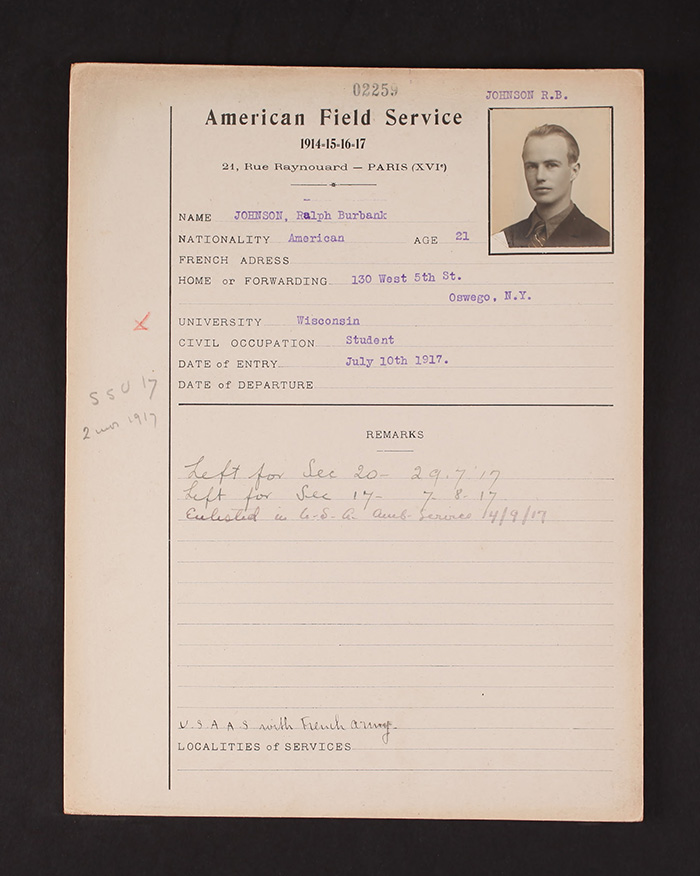 02259
JOHNSON R.B.
American Field Service
1914-15-16-17
21, Rue Raynouard — PARIS (XVIe)
NAME JOHNSON, Ralph Burbank
NATIONALITY American AGE 21
FRENCH ADRESS
HOME or FORWARDING 130 West 5th St.
Oswego, N.Y.
UNIVERSITY Wisconsin
CIVIL OCCUPATION Student
DATE of ENTRY July 10th 1917.
DATE of DEPARTURE
SSU 17
2 1917
REMARKS
Left for Sec 20- 29.7.17
Left for Sec 17- 7.8.17
Enlisted in U.S.A. Amb. Service 14/9/17
U S A A S with French Army-
LOCALITIES of SERVICES